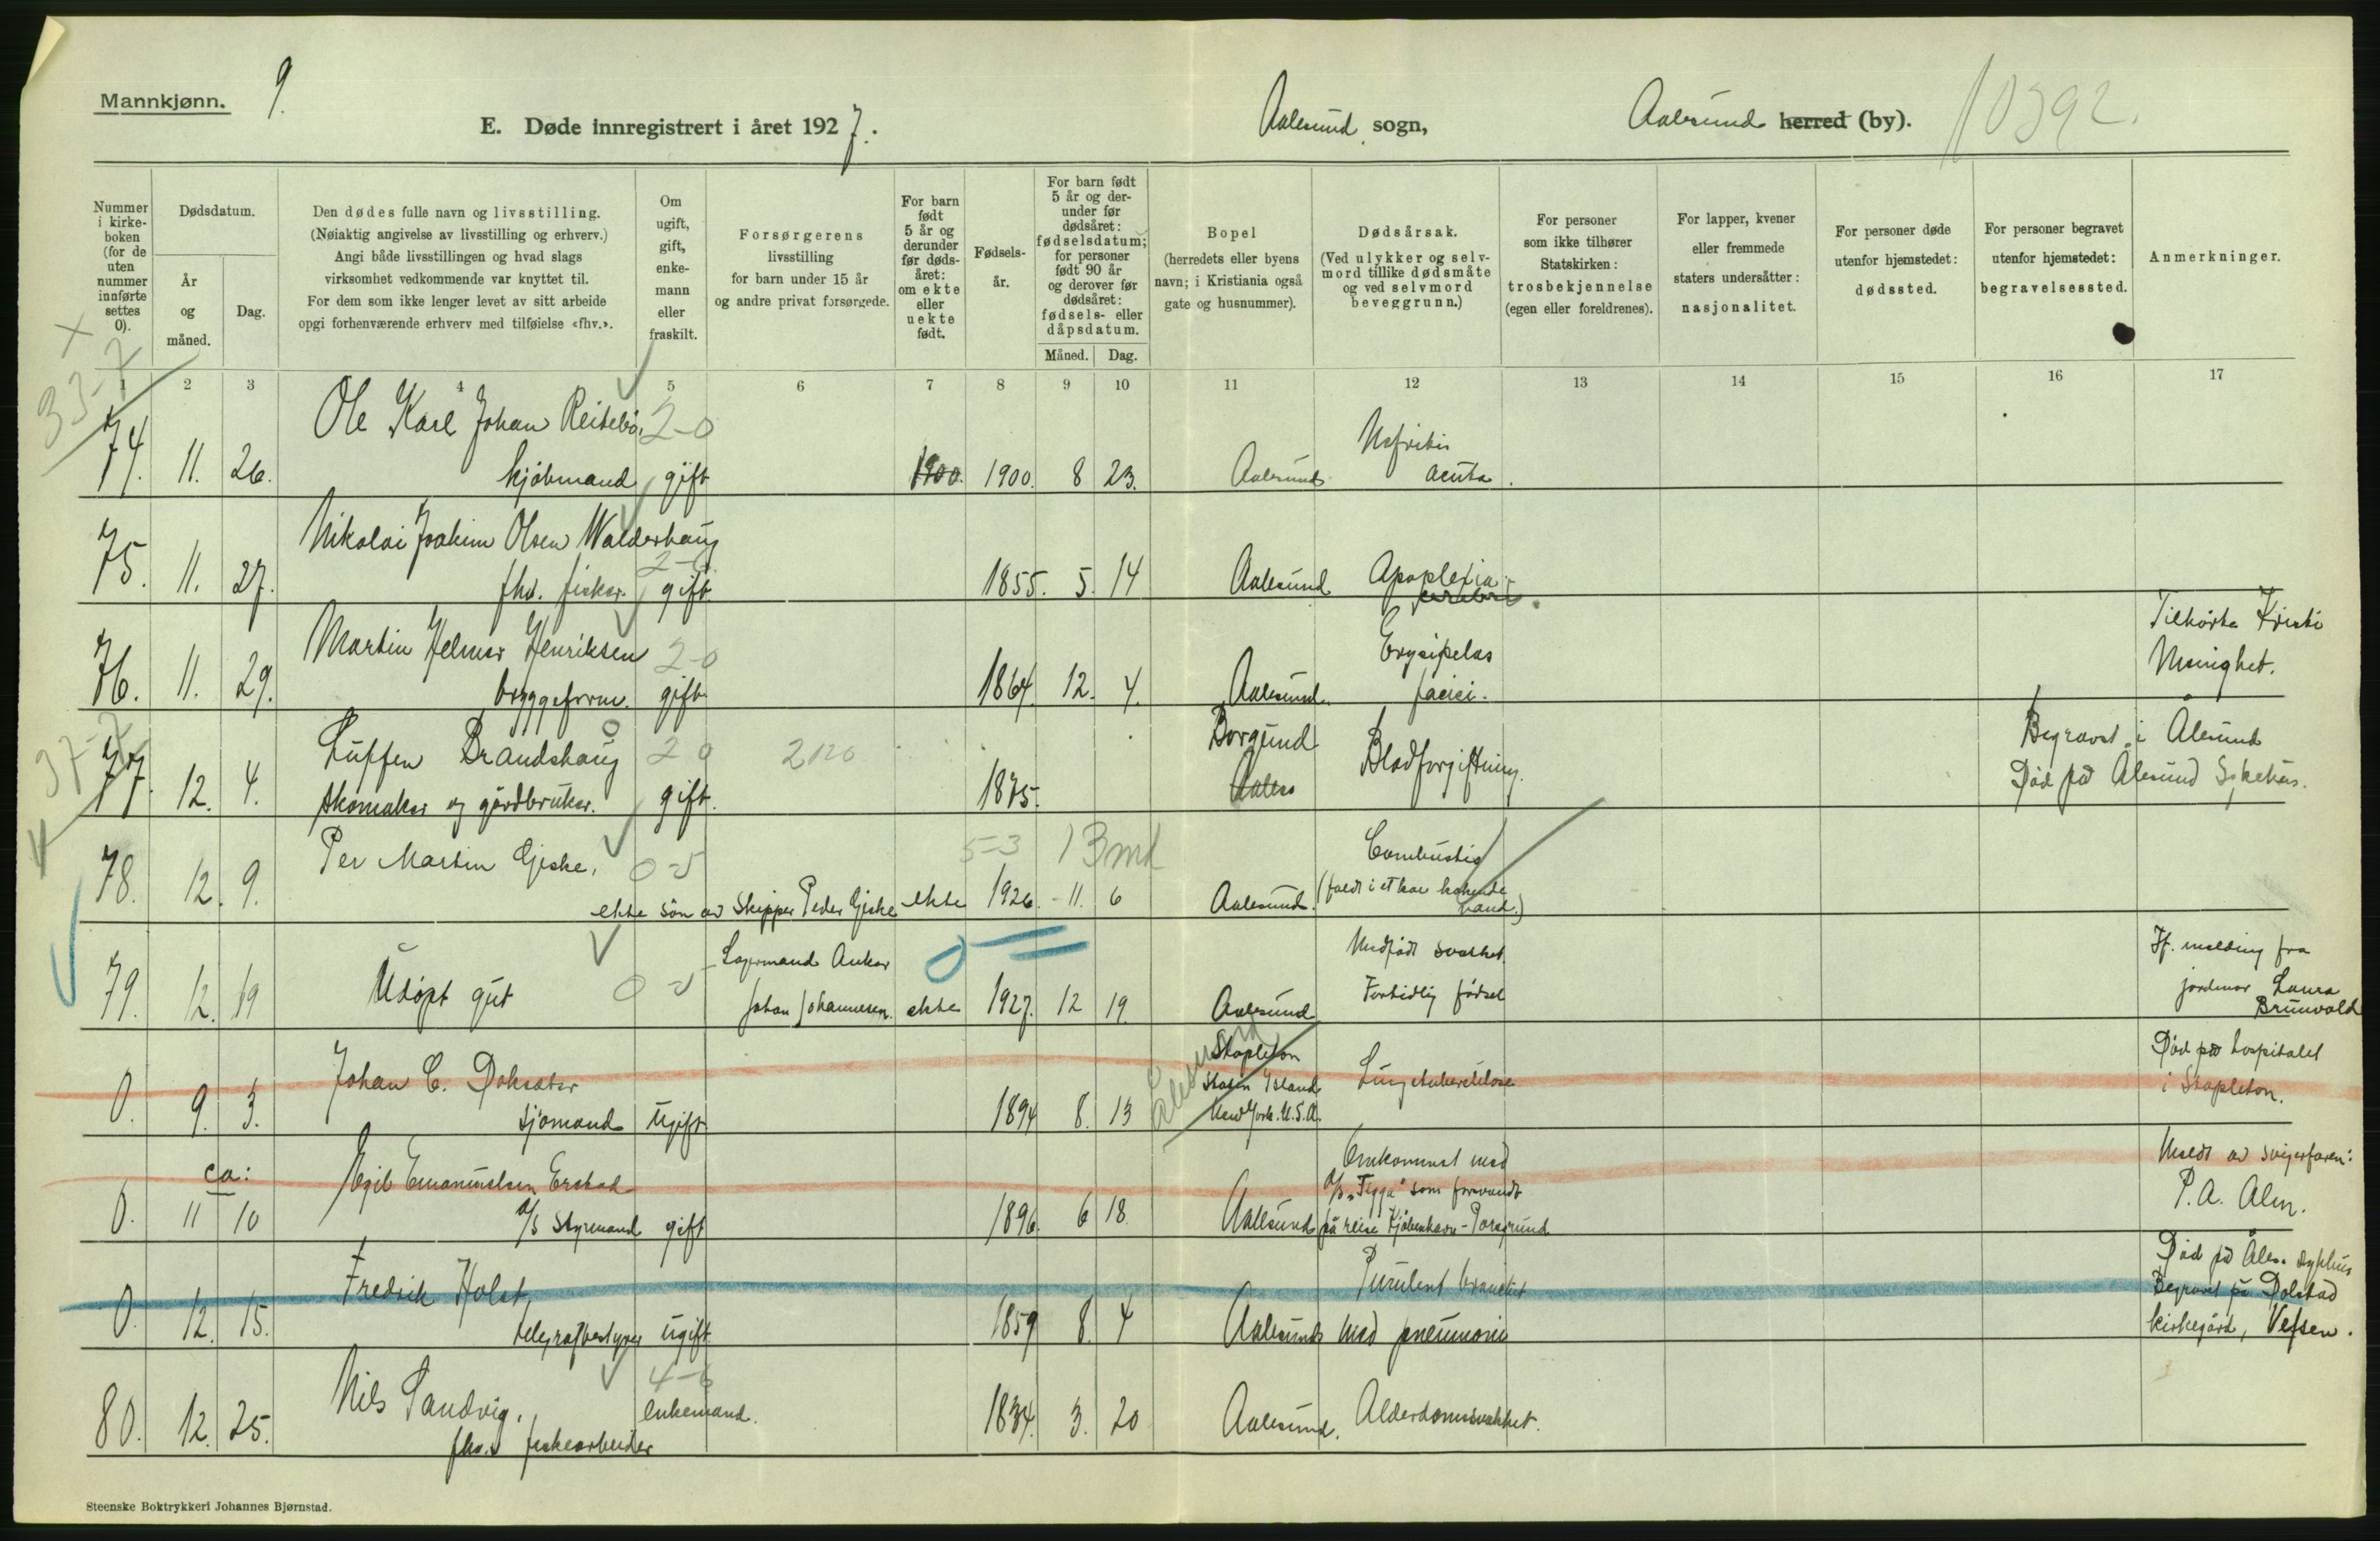 Mannkjønn.
9.
E. Døde innregistrert i året 1927.
Aalesund sogn,
Aalesund herred (by).
10392.
Nummer i kirke-boken (for de uten nummer innførte settes 0).
Dødsdatum.
År og måned.
Dag.
Den dødes fulle navn og livsstilling.
(Nøiaktig angivelse av livsstilling og erhverv.)
Angi både livsstillingen og hvad slags
virksomhet vedkommende var knyttet til.
For dem som ikke lenger levet av sitt arbeide
opgi forhenværende erhverv med tilføielse «fhv.».
Om ugift, gift, enke-mann eller fraskilt.
Forsørgerens
livsstilling
for barn under 15 år
og andre privat forsørgede.
For barn født 5 år og derunder før døds-året: om ekte eller uekte født.
Fødsels-år.
For barn født 5 år og der-under før dødsåret: fødselsdatum; for personer født 90 år og derover før dødsåret: fødsels- eller dåpsdatum.
Måned.
Dag.
Bopel
(herredets eller byens
navn; i Kristiania også
gate og husnummer).
Dødsårsak.
(Ved ulykker og selv-
mord tillike dødsmåte
og ved selvmord
beveggrunn.)
For personer
som ikke tilhører
Statskirken:
trosbekjennelse
(egen eller foreldrenes).
For lapper, kvener
eller fremmede
staters undersåtter:
nasjonalitet.
For personer døde
utenfor hjemstedet:
dødssted.
For personer begravet
utenfor hjemstedet:
begravelsessted.
Anmerkninger.
1 2 3 4 5 6 7 8 9 10 11 12 13 14 15 16 17
33-7 x
Ole Karl Johan Reitebø. 2-0 Nefritis
74. 11. 26. kjøbmand gift 1900. 1900. 8 23. Aalesund acuta.
Nikolai Joakim Olsen Walderhaug
2-0
75. 11. 27. fhv. fisker. gift. 1855. 5. 14 Aalesund Apoplexia cerebri.
Martin Helmer Henriksen 2-0 Erysipelas Tilhørte Kristi
76. 11. 29. bryggeform. gift. 1864. 12. 4. Aalesund. faciei. Menighet.
37-7
Luffen Brandshaug 2 0 2120 Borgund Blodforgiftning. Begravet i Ålesund
77. 12. 4. skomaker og gårdbruker. gift. 1875. Aales Død på Ålesund Sykehus.
Per Martin Giske. 0-5 5-3 13 md Combustio
78. 12. 9. ekte søn av Skipper Peder Giske ekte 1926. 11. 6 Aalesund. (faldt i et kar kokende vand.)
Lagermand Anker 0 Medfødt svakhet. Jf. melding fra
79. 12. 19 Udøpt gut 0-5 Johan Johannesen. ekte 1927. 12 19. Aalesund Fortidlig fødsel jordmor Laura
Brunvold
Johan C. Doksæter Ålesund Stapleton Lungetuberkulose Død på hospitalet
Staten Island i Stapleton.
0. 9. 3. sjømand ugift 1894 8. 13 New York. U.S.A.
ca: Egil Emanuelsen Erstad Omkommet med Meldt av svigerfaren:
D/S "Tegga" som forvandt P. A. Alm.
0. 11 10 D/S Styrmand gift 1896. 6 18. Aalesund på reise Kjøbenhavn - Porsgrund
Fredrik Holst, Purulent bronchit Død på Åles. sykhus
Begravet på Dolstad
0. 12. 15. telegrafbestyrer ugift. 1859 8. 4 Aalesund med pneumoni kirkegård, Vefsen.
Nils Sandvig. 4-6
80. 12. 25. fhv. fiskearbeider enkemand. 1834. 3. 20 Aalesund. Alderdomssvakhet.
Steenske Boktrykkeri Johannes Bjørnstad.